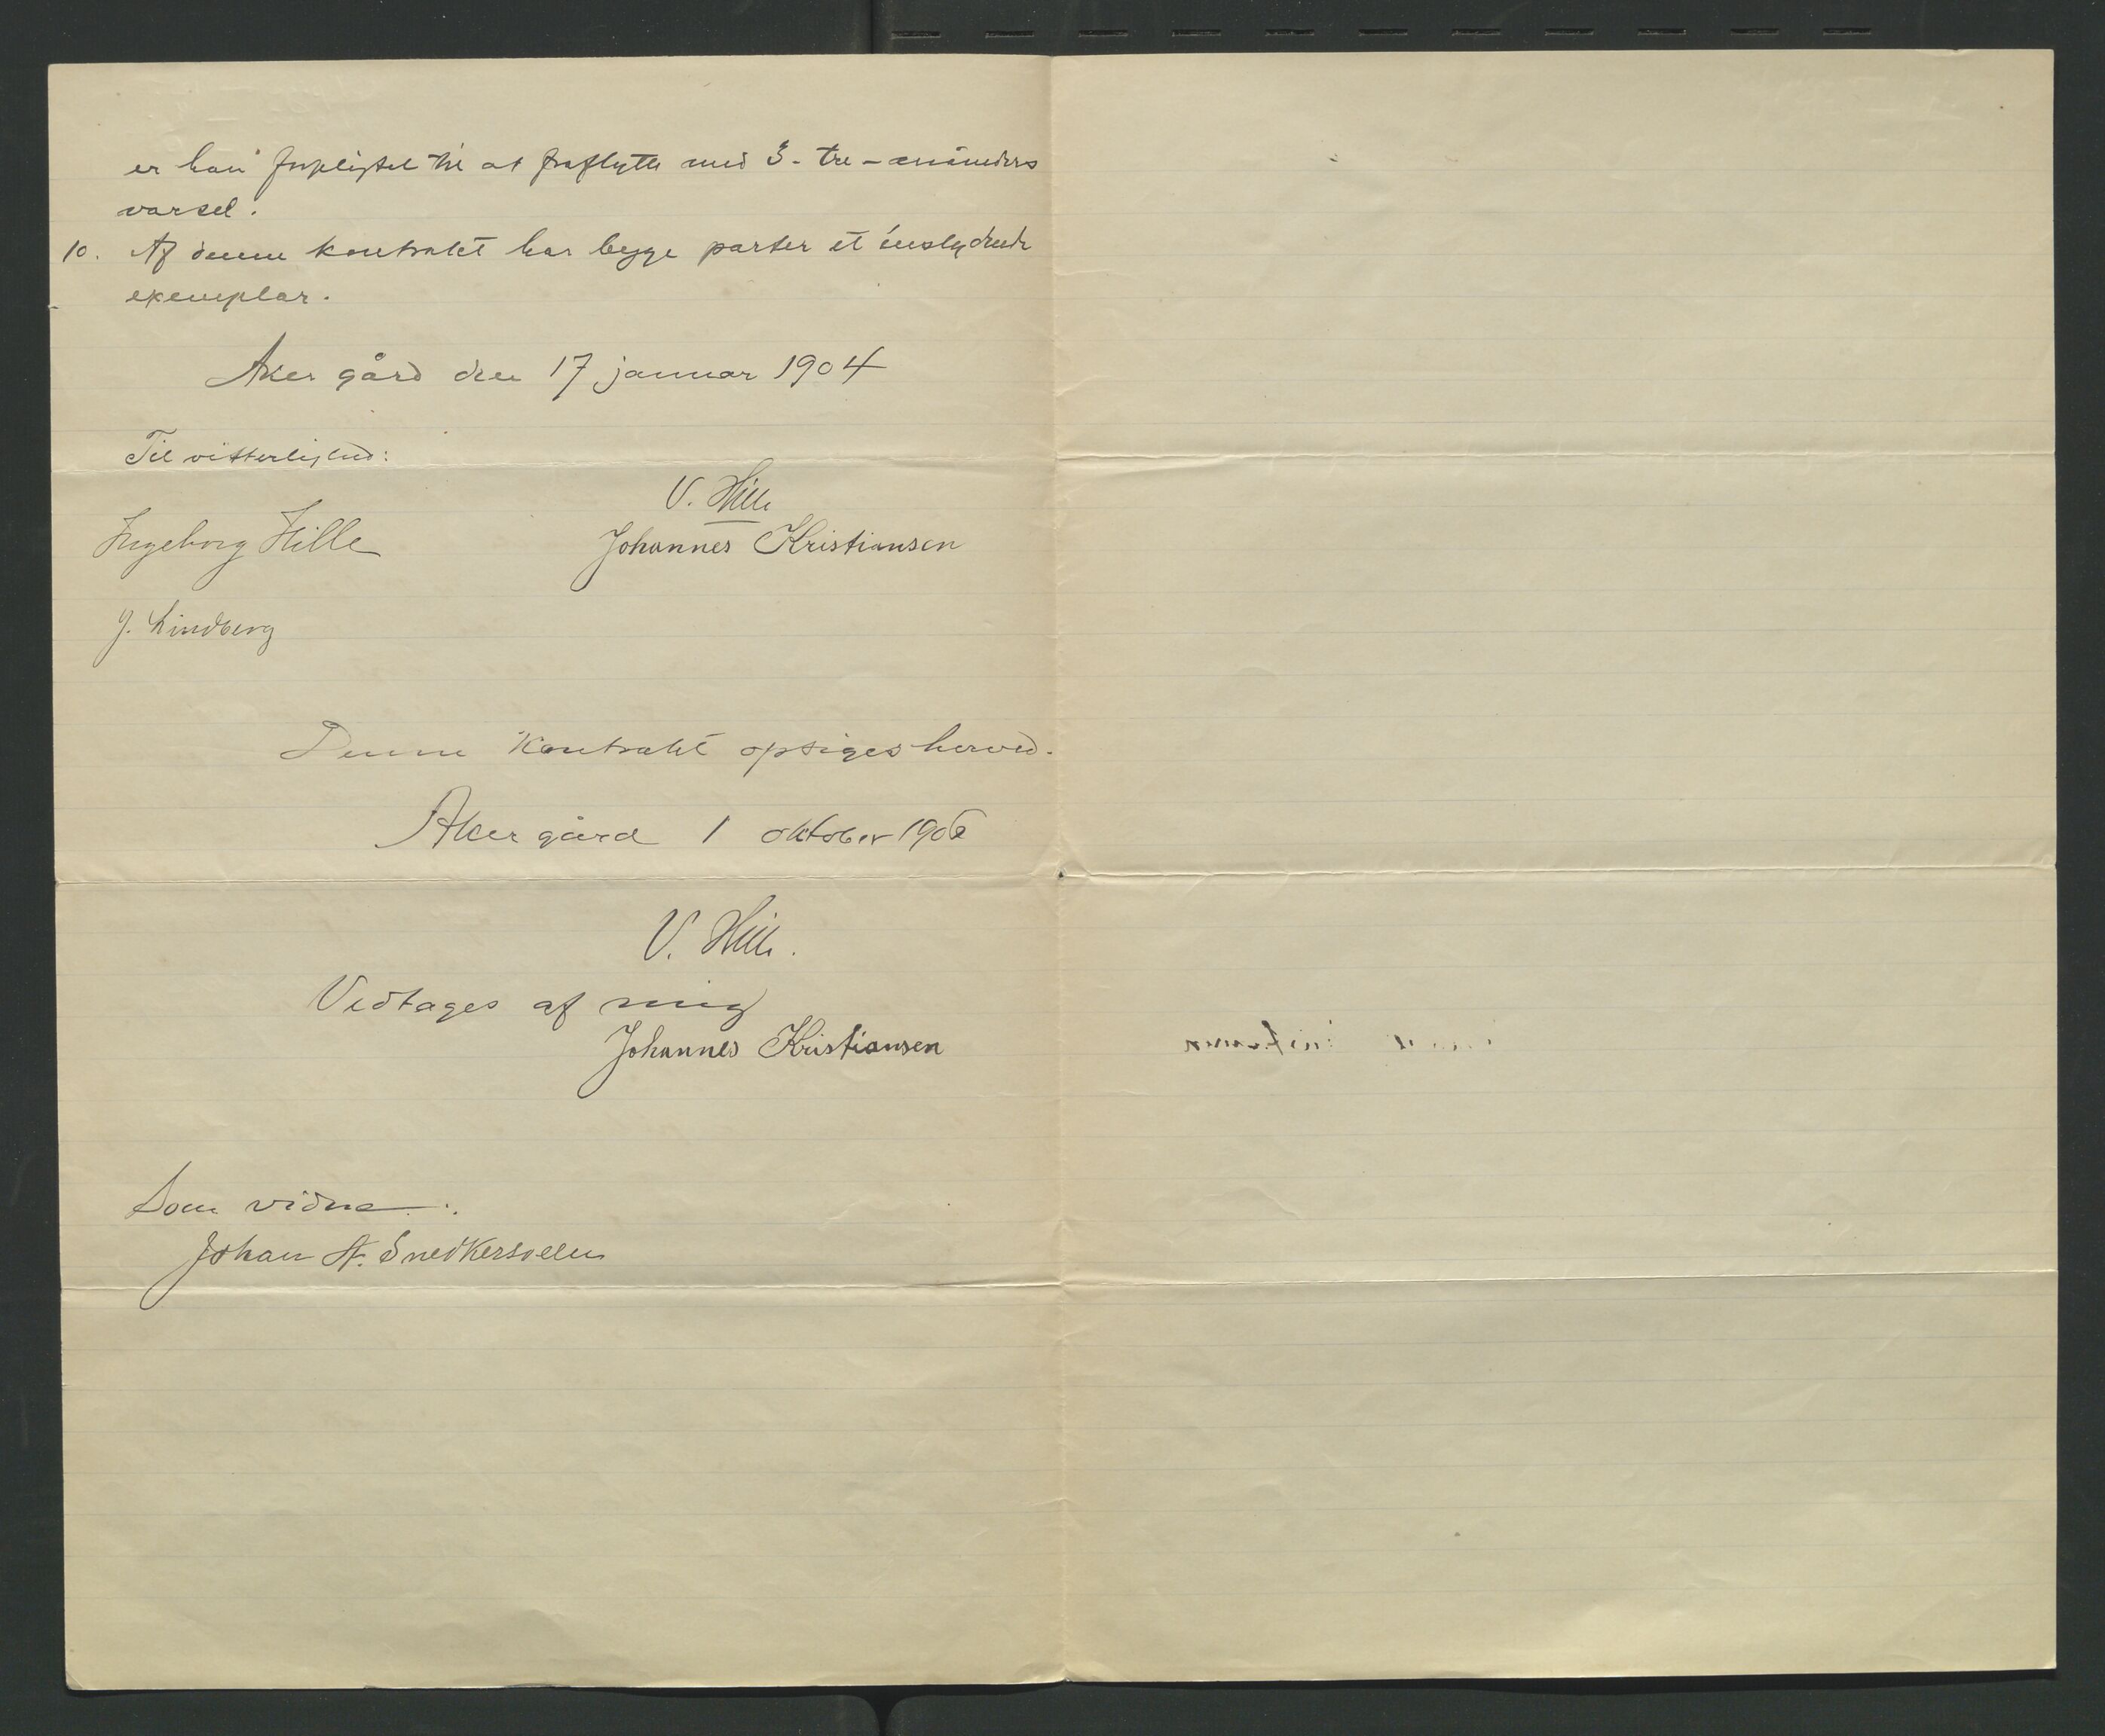 er han forpligtet til at fraflytte med 3 - tre - måneders
varsel.
10. Af denne kontrakt har begge parter et énslydende
exemplar.
Aker gård den 17 januar 1904
Til vitterlighed:
V. Hille
Ingeborg Hille
Johannes Kristiansen
J. Lindberg
Denne Kontrakt opsiges herved.
Aker gård 1 oktober 1906
V. Hille.
Vedtages af mig
Johannes Kristiansen
Som vidne:
Johan A. Snedkersveen